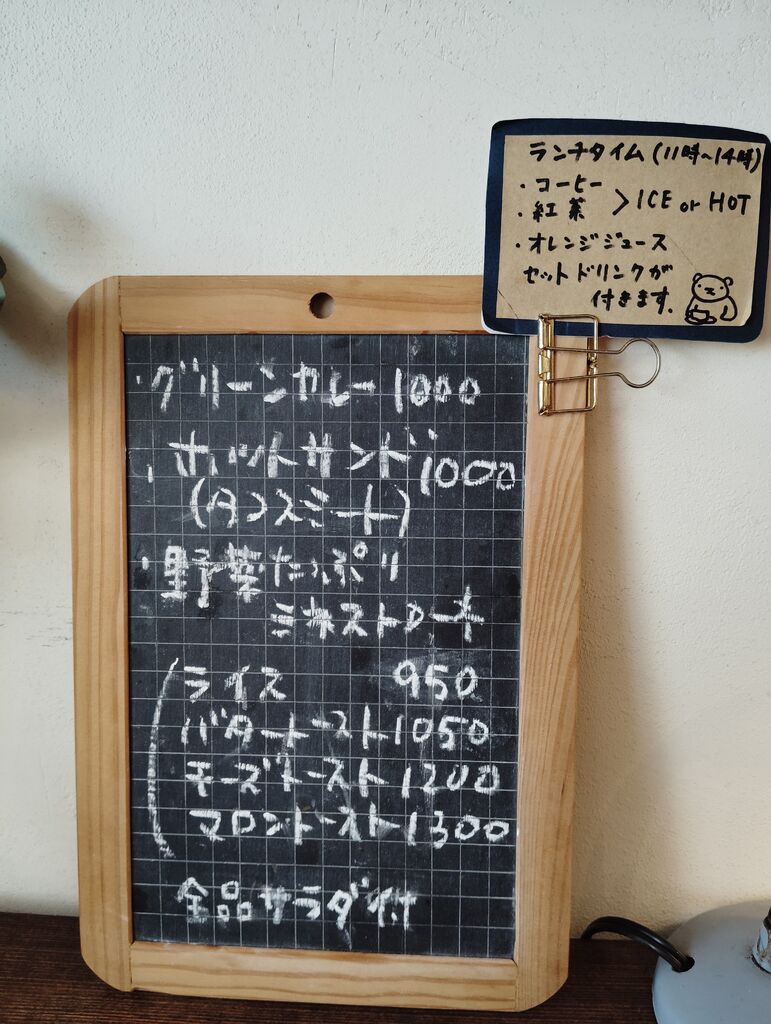 ランチタイム(11時~14時)
・コーヒー
・紅茶 > ICE or HOT
・オレンジジュース
セットドリンクが
付きます。
・グリーンカレー 1000
・ホットサンド 1000
(タコスミート)
・野菜たっぷり
ミネストローネ
(ライス 950
バタートースト 1050
チーズトースト 1200
マロントースト 1300
全品サラダ付